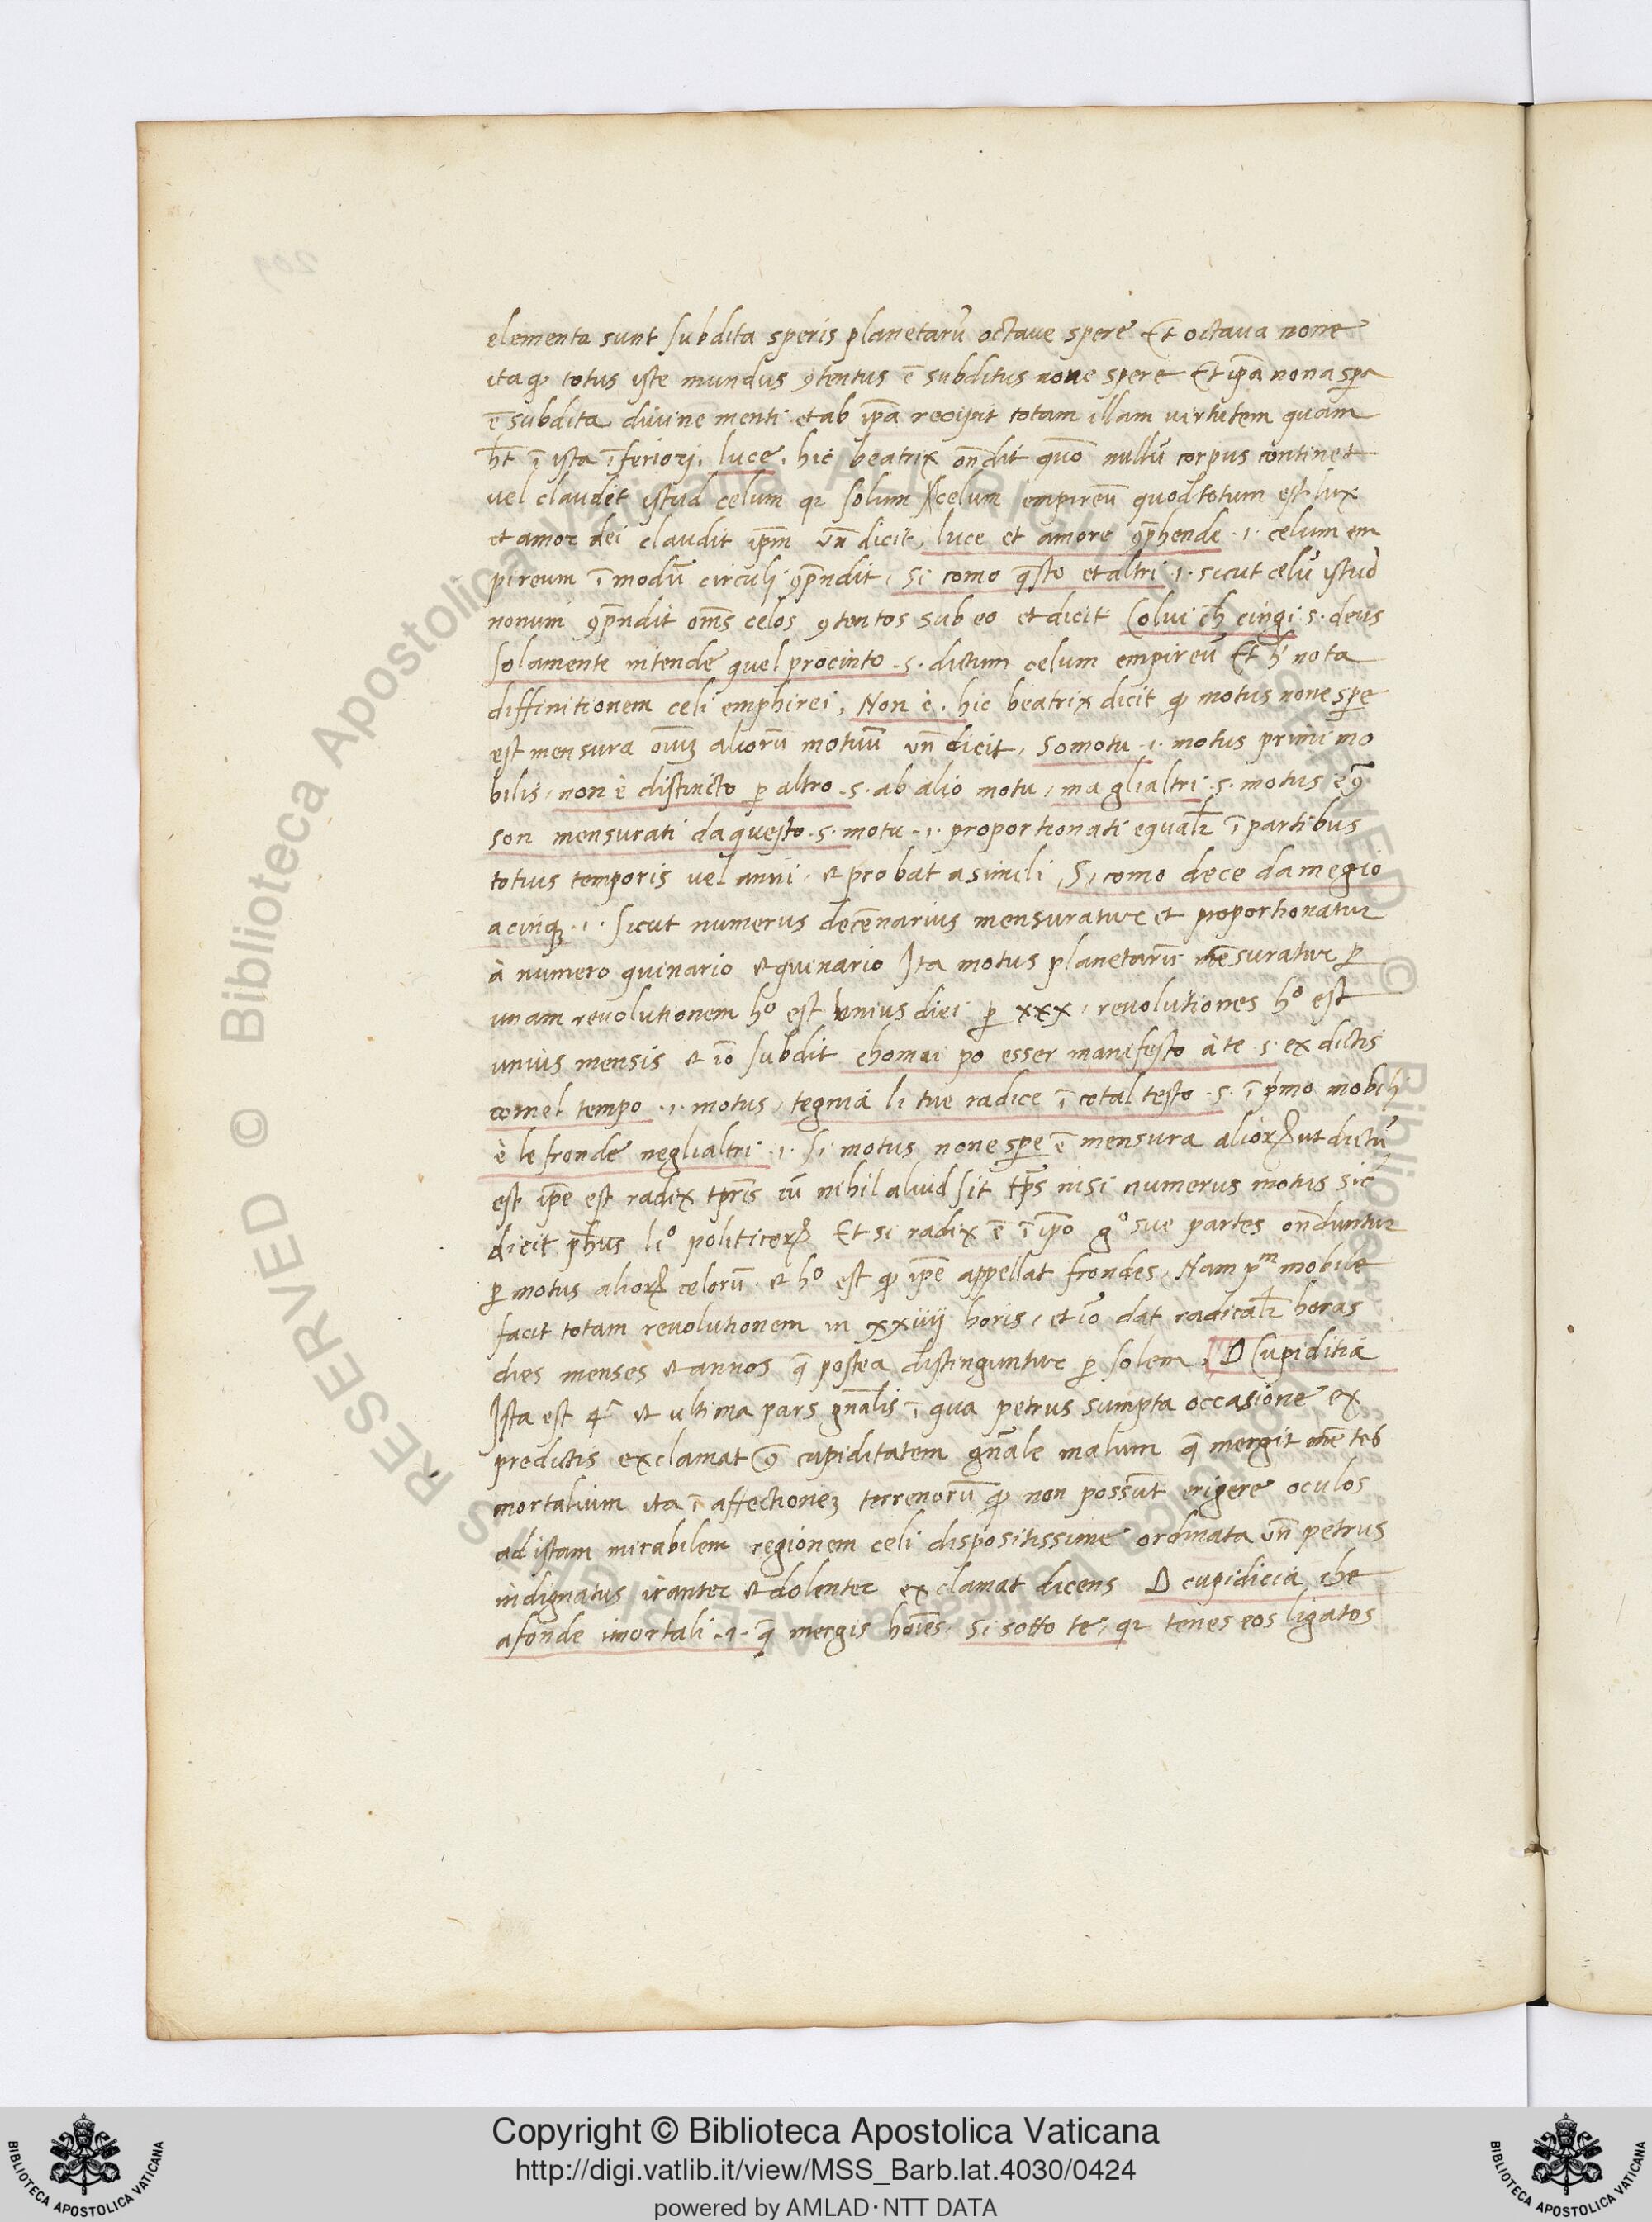 elementa sunt subdita speris planetarũ octaue spere Et octaua none
itaq totus iste mundus ꝯtentus ē subditus none spere Et ip̃a nona sp̃a
ē subdita diuine menti et ab ip̃a recipit totam illam uirtutem quam
h̃t ĩ ista ĩferiori. luce. hic beatrix oñdit quõ nullũ corpus continet
uel claudit istud celum qꝛ solum celum empireũ quod totum est lux
et amor dei claudit ip̃m vñ dicit, luce et amore ꝯp̃hende .i. celum em
pireum ĩ modũ circulj ꝯp̃ndit, si como q̃sto et altri .i. sicut celũ istud
nonum ꝯp̃ndit om̃s celos ꝯtentos sub eo et dicit Colui ch̃ cingi s. deus
solamente intende quel procinto .s. dictum celum empireũ Et h' nota
diffinitionem celi emphirei, Non è. hic beatrix dicit ꝙ motus none sp̃e
est mensura oĩuȝ aliorũ motuũ vñ dicit, so motu .i. motus primi mo
bilis, non è distincto ꝑ altro .s. ab alio motu, ma gli altri .s. motus
son mensurati da questo .s. motu .i. proportionati equalr̃ ĩ partibus
totius temporis uel anni. et probat a simili, Si como dece da megio
a cinqȝ .i. sicut numerus decẽnarius mensuratur et proportionatur
à numero quinario et quinario Ita motus planetarũ mẽsuratur ꝑ
unam reuolutionem hᵒ est unius diei ꝑ xxx, reuolutiones hᵒ est
unius mensis et iõ subdit chomai po esser manifesto à te .s. ex dictis
comel tempo .i. motus, tegnia li tue radice ĩ cotal testo .s. ĩ p̾mo mobili
è le fronde negli altri .i. si motus none sp̃e ē mensura alioꝝ ut dictũ
est ip̃e est radix tp̃ris cũ nihil aliud sit tp̃s nisi numerus motus sic
dicit ph̃us liᵒ politicoꝝ Et si radix ē ĩ ip̃o gᵒ sue partes oñduntur
ꝑ motus alioꝝ celorũ et hᵒ est ꝙ ip̃e appellat frondes, Nam pᵐ mobile
facit totam reuolutionem in xxiiij horis, et iõ dat radicalr̃ horas
dies menses et annos q̃ postea distinguntur ꝑ solem. O Cupiditia
Ista est 4ᵃ et ultima pars gñalis ĩ qua petrus sumpta occasione ex
predictis exclamat ꝯ̃ cupiditatem gñale malum q̃ mergit mẽtes
mortalium ita ĩ affectioneȝ terrenorũ ꝙ non possũt erigere oculos
ad istam mirabilem regionem celi dispositissime ordinata vñ petrus
indignatus iranter et dolenter exclamat dicens O cupidicia che
afonde i mortali .i. q̃ mergis hoĩes. Si sotto te, qꝛ tenes eos ligatos
Copyright © Biblioteca Apostolica Vaticana
http://digi.vatlib.it/view/MSS_Barb.lat.4030/0424
powered by AMLAD·NTT DATA